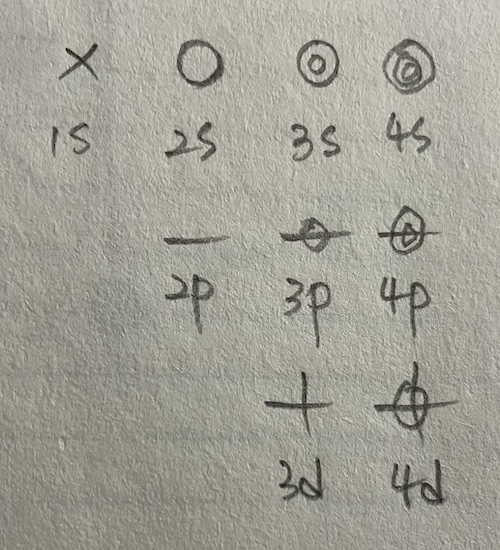 1S 2S 3S 4S
2p 3p 4p
3d 4d